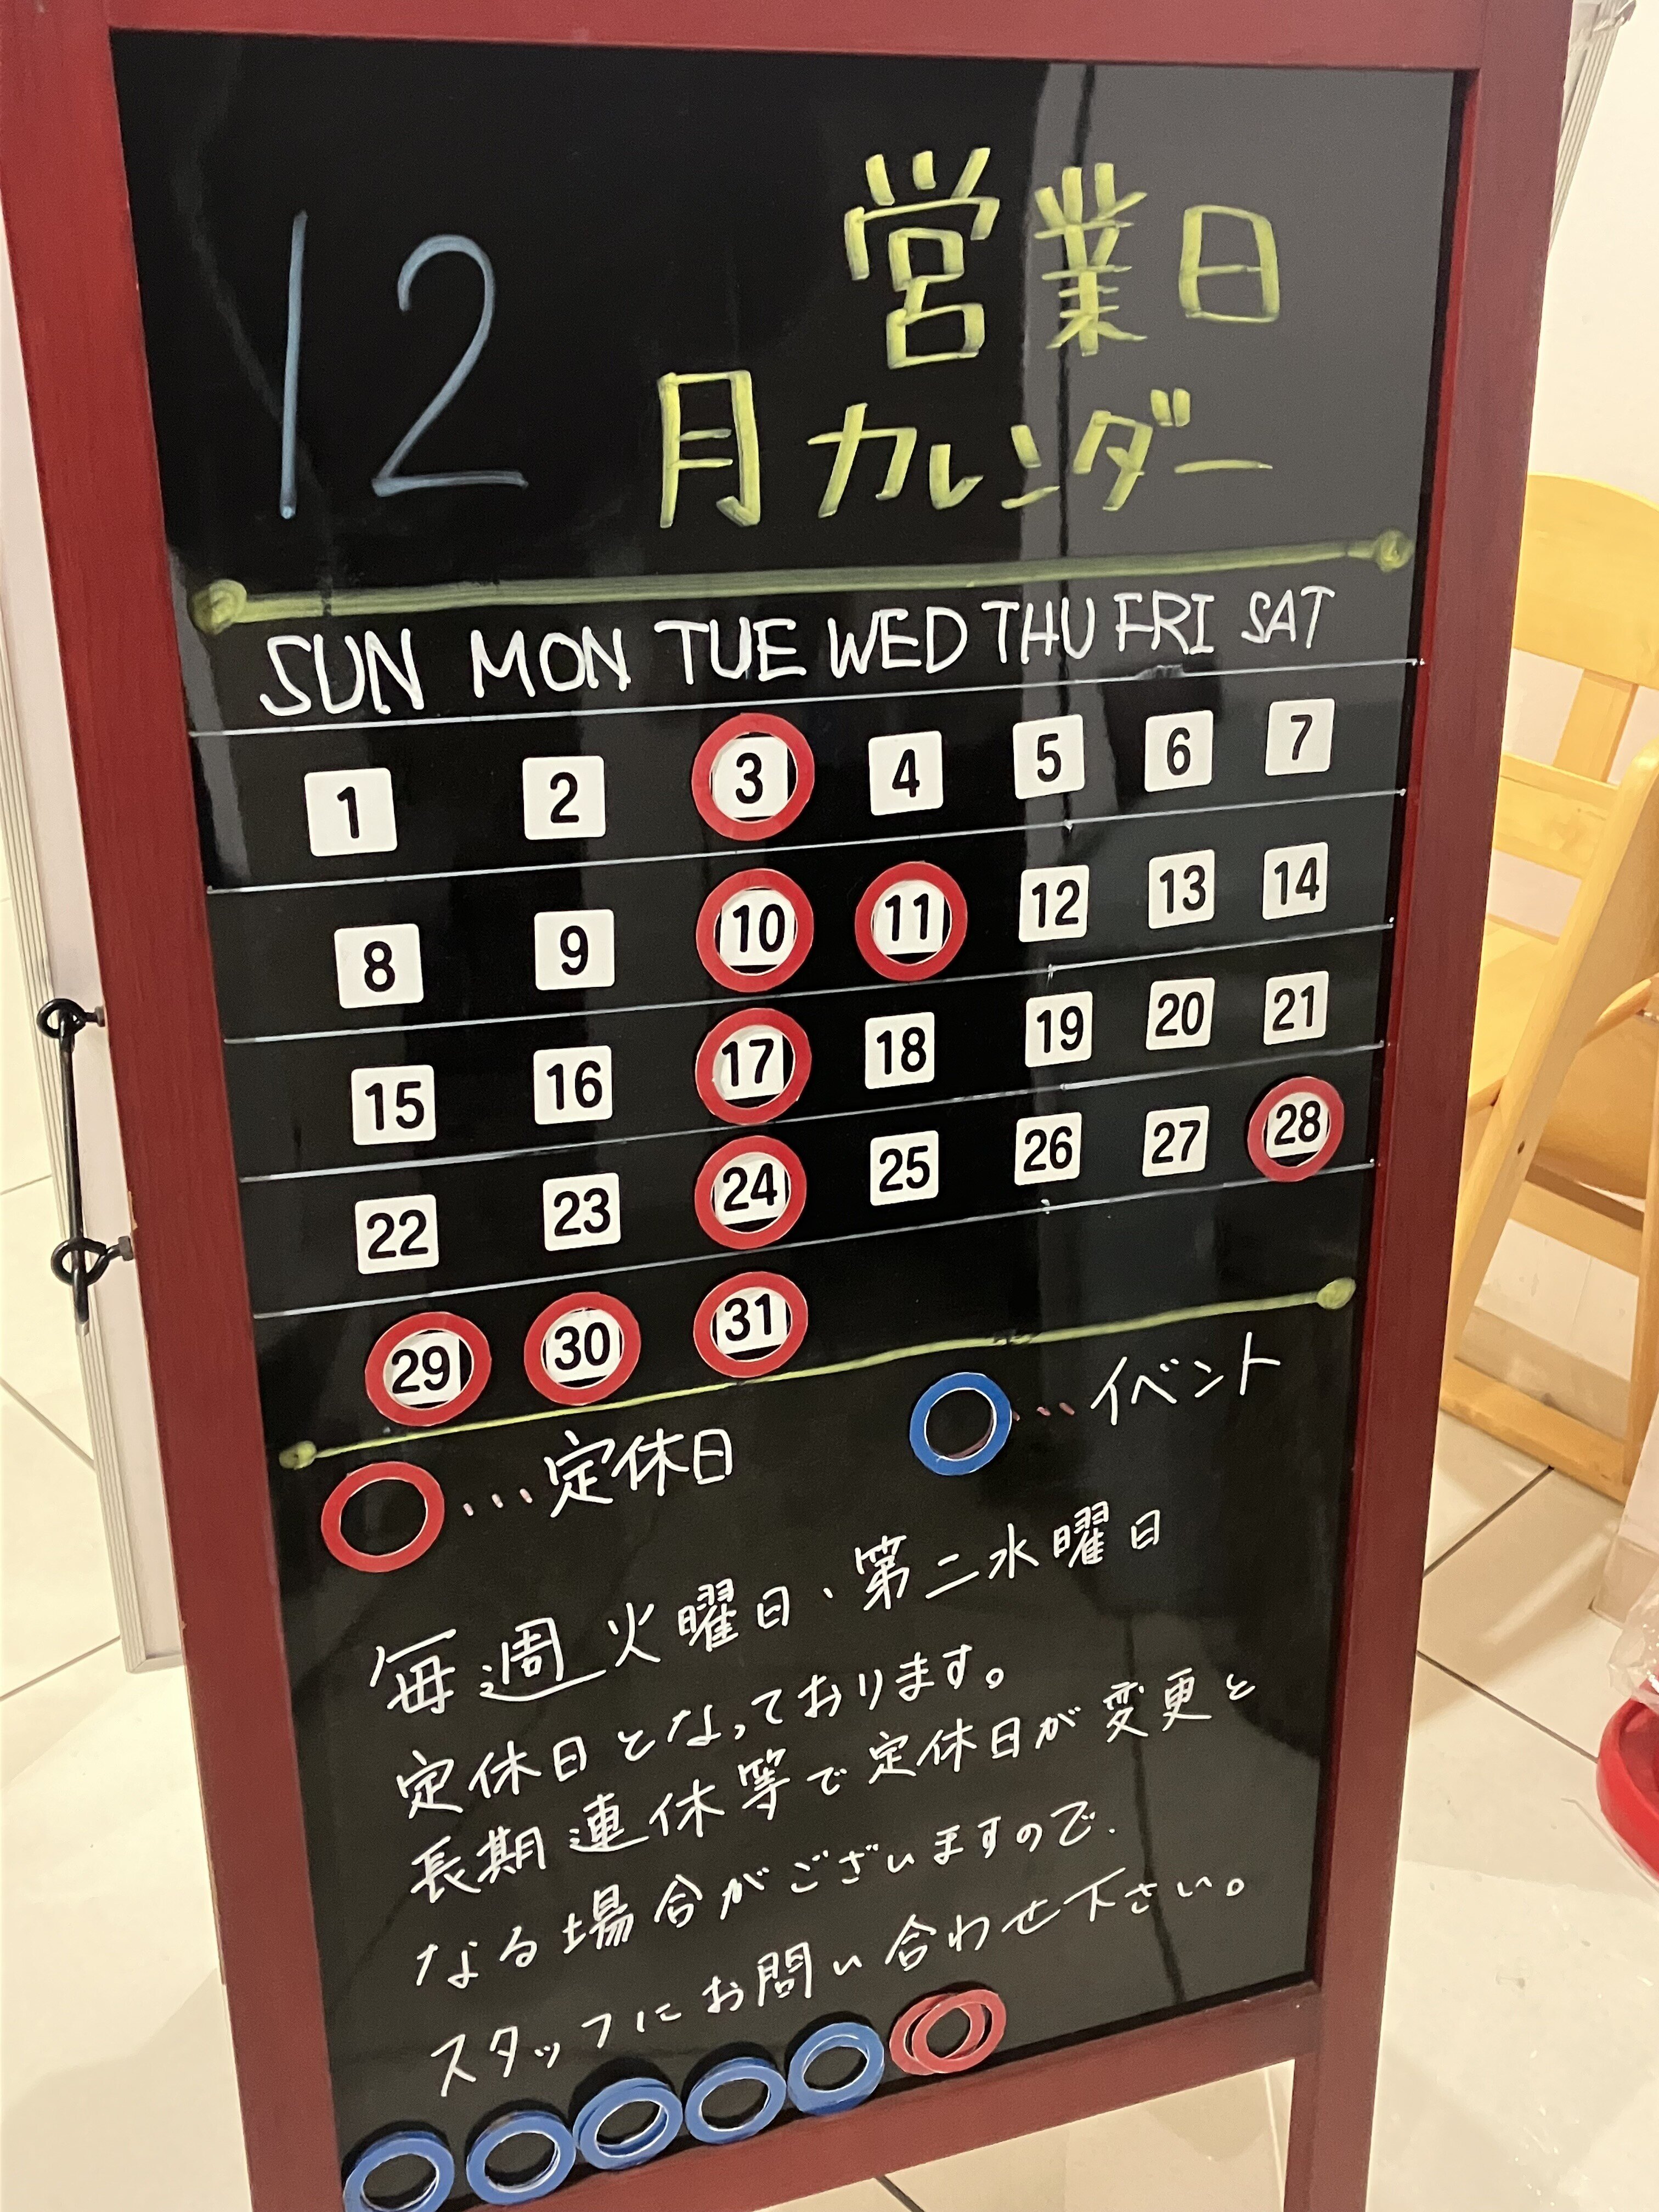 12 営業日
月カレンダー
SUN MON TUE WED THU FRI SAT
1 2 3 4 5 6 7
8 9 10 11 12 13 14
15 16 17 18 19 20 21
22 23 24 25 26 27 28
29 30 31
…定休日 …イベント
毎週火曜日、第二水曜日
定休日となっております。
長期連休等で定休日が変更と
なる場合がございますので、
スタッフにお問い合わせ下さい。